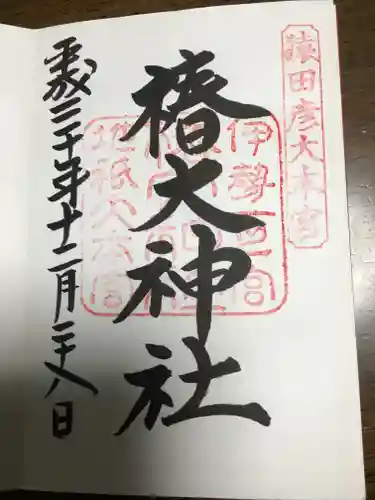 猿田彦大本宮
椿大神社
伊勢一宮
地祇大本宮
平成三十年十二月二十八日